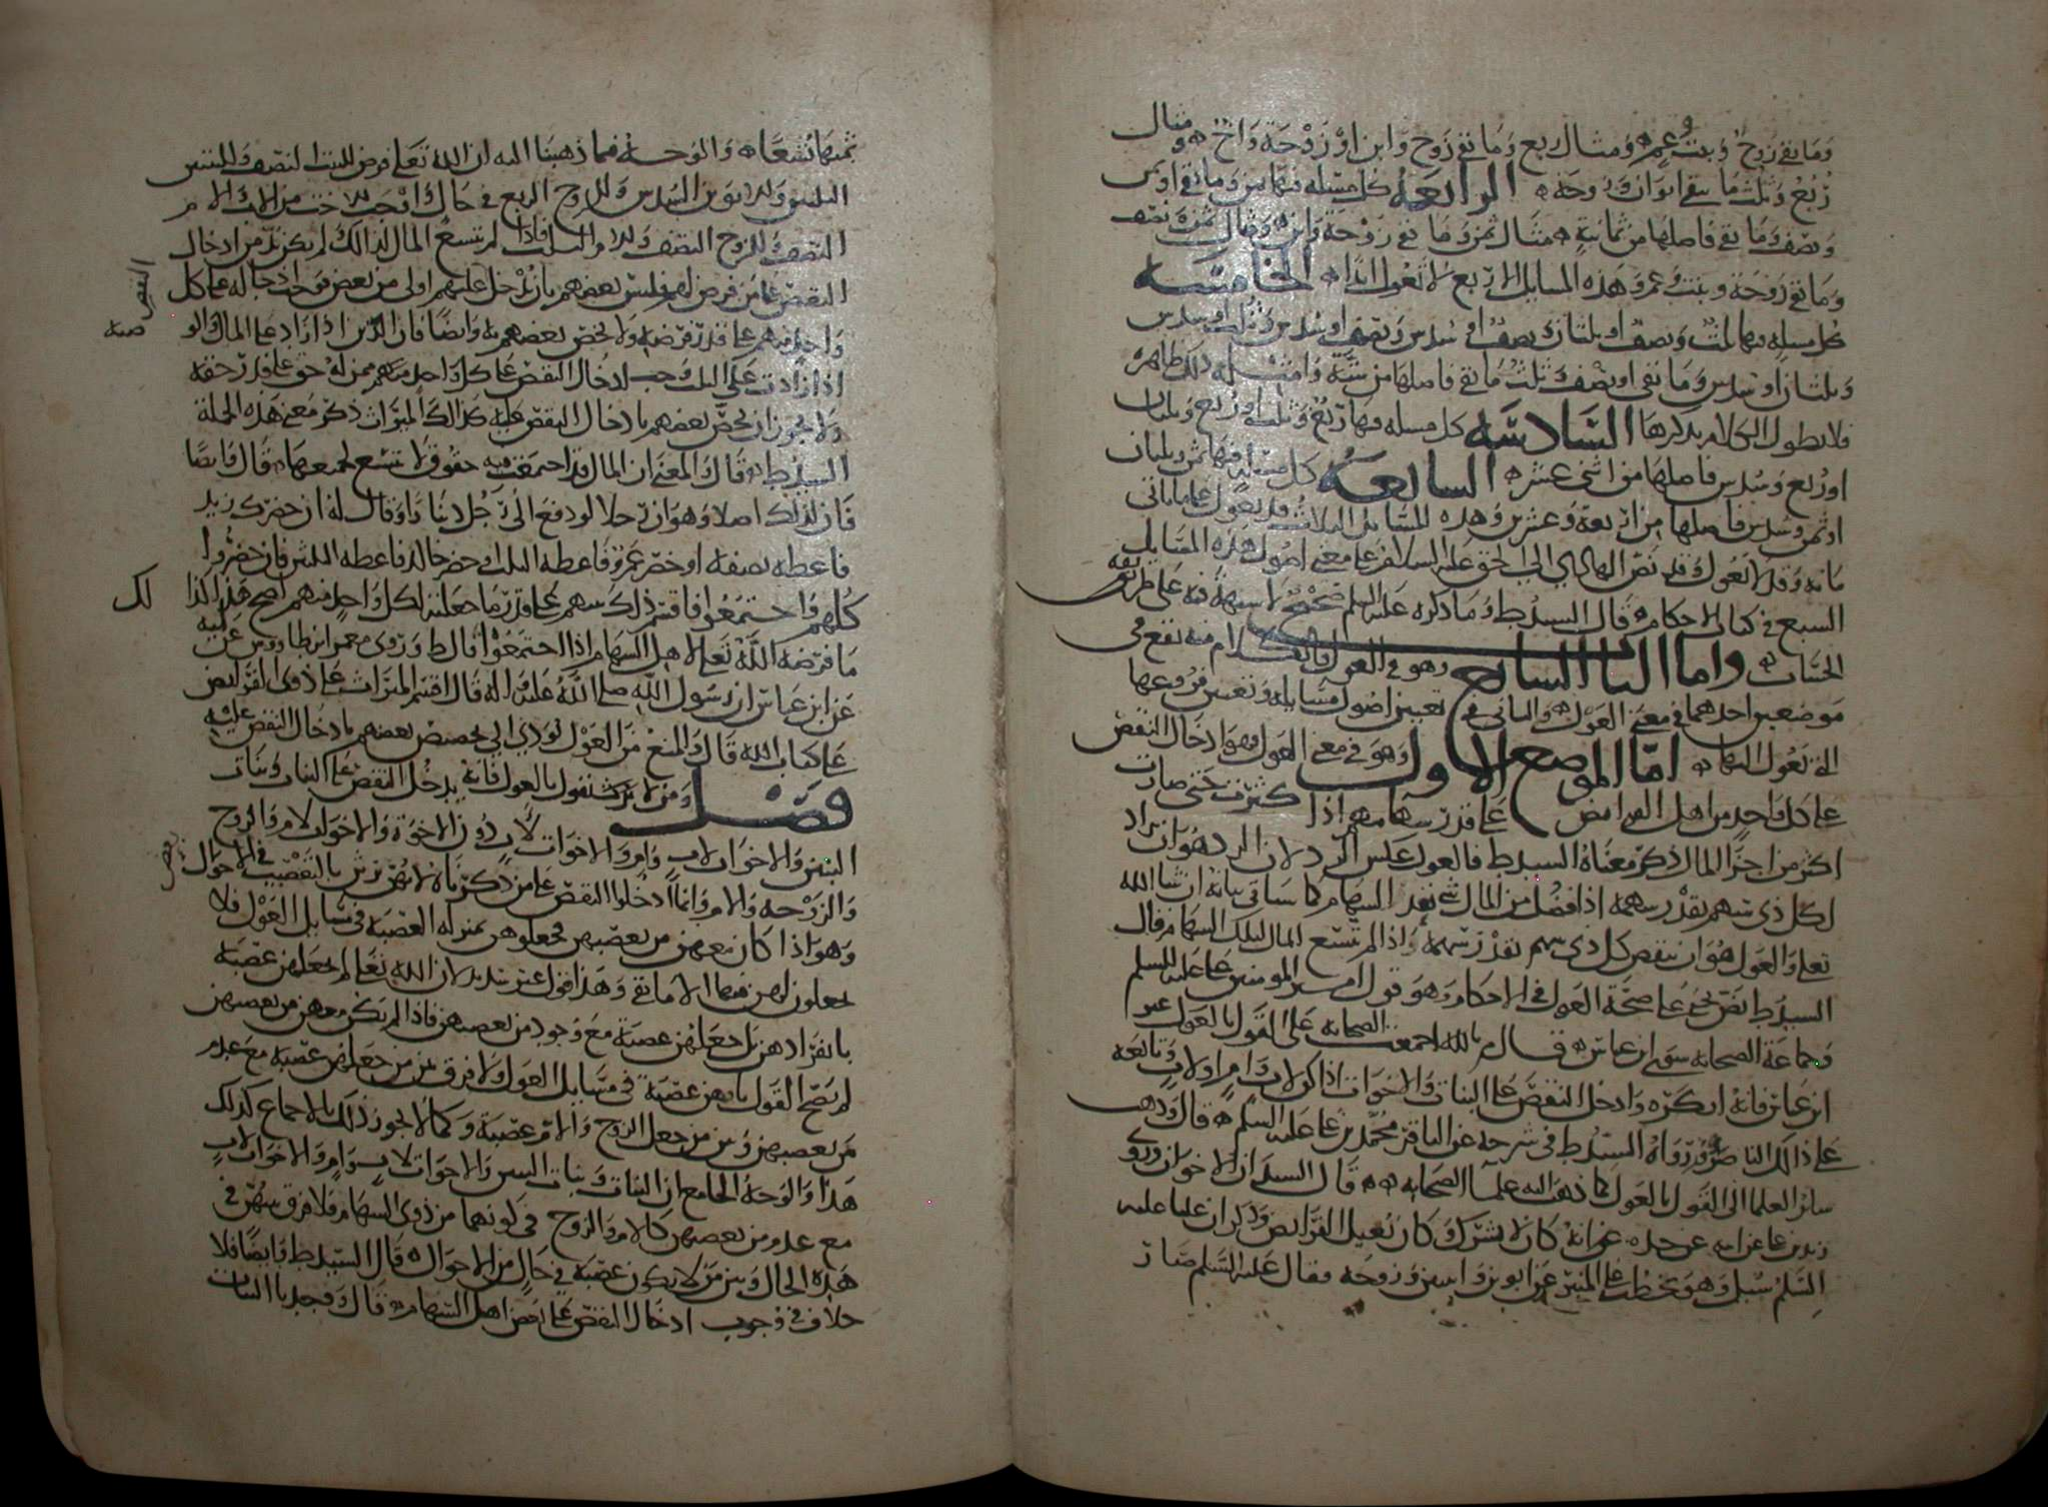 وما بقي زوج وبنت وعم ومثال ربع وما بقي زوج وابن او زوجة واخ ومثال
ربع وثلث ما يبقى ابوان وزوجة الرابعة كل مسئلة فيها ثمن وما بقي او ثمن
ونصف وما بقي فاصلها من ثمانية مثال ثمن وما بقي زوجة وابن ومثال ثمن ونصف
وما بقي زوجة وبنت وعم وهذه المسايل الاربع لا تعول ابدا الخامسة
كل مسئلة فيها ثلث ونصف او ثلثان ونصف او سدس ونصف او سدس وثلث او سدس
وثلثان او سدس وما بقي او نصف وثلث وما بقي فاصلها من ستة وامثلة ذلك ظاهرة
فلا نطول الكلام بذكرها السادسة كل مسئلة فيها ربع وثلث او ربع وثلثان
او ربع وسدس فاصلها من اثنى عشر السابعة كل مسئلة فيها ثمن وثلثان
او ثمن وسدس فاصلها من اربعة وعشرين وهذه المسايل الثلاث قد تعول على ما ياتي
بيانه وقد لا تعول وقد نص الهادي الى الحق عليه السلام على معنى اصول هذه المسايل
السبع في كتاب الاحكام قال السيد ط وما ذكره عليه السلم صحيح لا شبهة فيه على طريقة
الحساب واما الباب السابع وهو في العول فالكلام منه يقع في
موضعين احدهما في معنى العول والثاني في تعيين اصول مسايله وتعيين فروعها
التي تعول اليها اما الموضع الاول وهو في معنى العول فهو ادخال النقص
على كل واحد من اهل الفرايض على قدر سهامهم اذا كثرت حتى صارت
اكثر من اجزا المال ذكر معناه السيد ط فالعول عكس الرد لان الرد هو ان يزاد
لكل ذي سهم بقدر سهمه اذا فضل من المال شي بعد السهام كما سياتي بيانه ان شا الله
تعالى والعول هو ان ينقص كل ذي سهم بقدر سهمه اذا لم تسع المال لتلك السهام قال
السيد ط نص يحيى على صحة العول في الاحكام وهو قول امير المومنين علي عليه السلم
وجماعة الصحابة سوى ابن عباس قال م بالله اجمعت الصحابة على القول بالعول غير
ابن عباس فانه انكره وادخل النقص على البنات والاخوات اذا كن لاب وام او لاب وتابعه
على ذلك الناصر ورواه السيد ط في شرحه عن الباقر محمد بن علي عليه السلم قال وذهب
سائر العلما الى القول بالعول كما ذهب اليه علما الصحابة قال السيدان الاخوان وروى
زيد بن علي عن ابيه عن جده عن انه كان لا يشرك وكان يعيل الفرايض وذكر ان عليا عليه
السلم سئل وهو يخطب على المنبر عن ابوين وابنتين وزوجة فقال عليه السلم صار
ثمنها تسعا والوجه فيما ذهبنا اليه ان الله تعالى فرض للبنت النصف وللبنتين
الثلثين وللابوين السدس وللزوج الربع في حال واوجب للاخت من الاب والام
النصف وللزوج النصف وللام الثلث فاذا لم تسع المال لذلك لم يكن بد من ادخال
النقص على من فرض لهم فليس بعضهم بان يدخل عليهم اولى من بعض فوجب ادخاله على كل
واحد منهم على قدر فرضه ولا يخص بعضهم به وايضا فان الدين اذا زاد على المال والو
اذا زادت على الثلث وجب ادخال النقص على كل واحد منهم ممن له حق على قدر حقه
ولا يجوز ان يخص بعضهم بادخال النقص عليه كذلك الميراث ذكر معنى هذه الجملة
السيد ط قال والمعنى ان المال قد اجتمعت فيه حقوق لا تتسع لجميعها قال وايضا
فان لذلك اصلا وهو ان رجلا لو دفع الى رجل دنانا وقال له ان حضرك زيد
فاعطه نصفه او حضر عمرو فاعطه الثلث او حضر خالد فاعطه الثلثين فان حضروا
كلهم واجتمعوا فاقسم ذلك بينهم على قدر ما جعلته لكل واحد منهم اصح هذا كذا
لك
ما فرضه الله تعالى لاهل السهام اذا اجتمعوا قال ط وروى معمر ابن طاووس عن ابيه
عن ابن عباس ان رسول الله صلى الله عليه واله قال اقسم الميراث على ذوي الفرايض
على كتاب الله قال والمنع من العول يودي الى تخصيص بعضهم بادخال النقص عليه
فصل ومن لا يقول بالعول فانه يدخل النقص على البنات وبنات
البنين والاخوات لاب وام والاخوات لاب دون الاخوة والاخوات لام والزوج
والزوجة والام وانما ادخلوا النقص على من ذكرناه لانهن يرثن بالتعصيب في الاحوال
وهو اذا كان معهن من يعصبهن فجعلوهن بمنزلة العصبة في مسايل العول فلا
يجعلون لهن فيها الا ما بقي وهذا قول غير سديد لان الله تعالى لم يجعلهن عصبة
بانفرادهن بل جعلهن عصبة مع وجود من يعصبهن فاذا لم يكن معهن من يعصبهن
لم يصح القول بانهن عصبة في مسايل العول ولا فرق بين من جعلهن عصبة مع عدم
من يعصبهن وبين من جعل الزوج والام عصبة وكما لا يجوز ذلك بالاجماع كذلك
هذا والوجه الجامع ان البنات وبنات البنين والاخوات لاب وام والاخوات لاب
مع عدم من يعصبهن كالام والزوج في كونهما من ذوي السهام فلا فرق بينهن في
هذه الحال وبين من لا يكون عصبة في حال من الاحوال قال السيد ط وايضا فلا
خلاف في وجوب ادخال النقص على بعض اهل السهام قال وجدنا البنات
النقص
صية
بعض